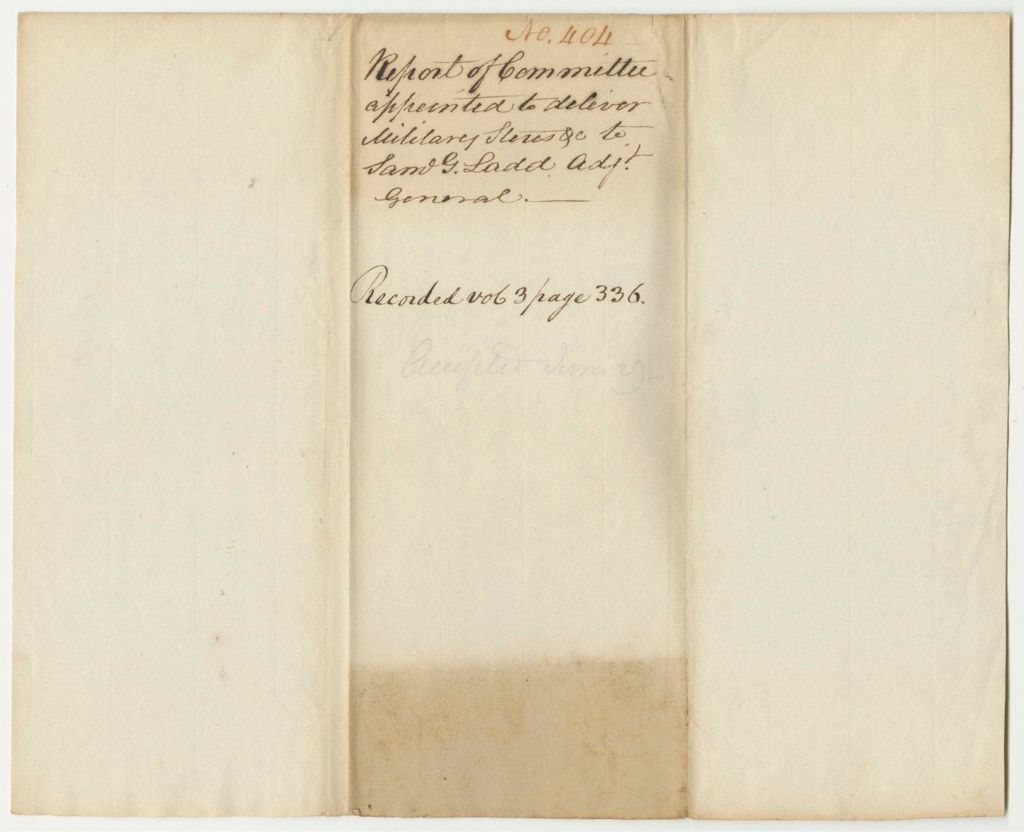 No. 404
Report of Committee
appointed to deliver
Military Stores &c to
Saml G. Ladd Adjt.
General.
Recorded vol 3 page 336.
Accepted June 29